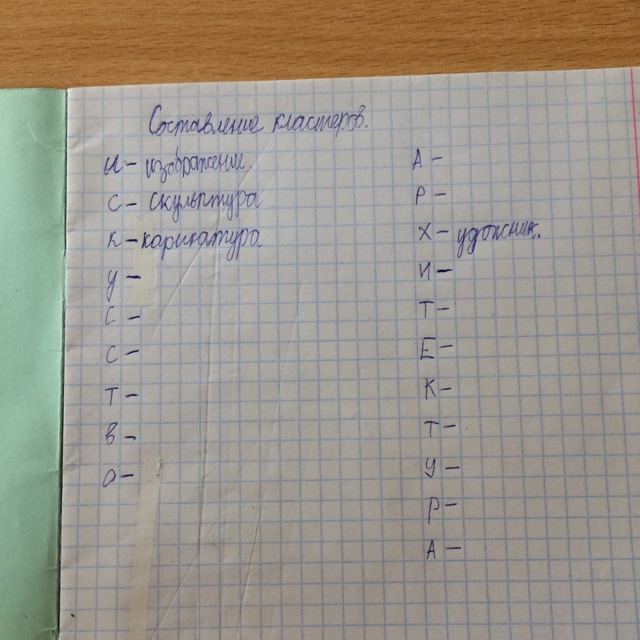 Составление кластеров.
И - изображение
С - скульптура
К - карикатура
У -
С -
С -
Т -
В -
О -
А -
Р -
Х - удожник.
И -
Т -
Е -
К -
Т -
У -
Р -
А -